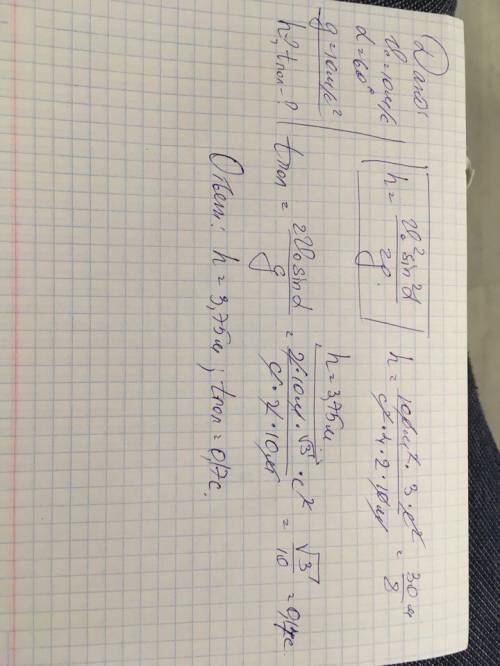 Дано:
v₀ = 10 м/с
α = 60°
g = 10 м/с²
h-?, tпол-?
h = v₀² sin²α / 2g
h = 100 м² · 3 · с² / с² · 4 · 2 · 10 м = 30 м / 8
h = 3,75 м
tпол = 2v₀ sinα / g = 2 · 10 м · √3 · с² / с · 2 · 10 м = √3 / 10 = 0,17с
Ответ: h = 3,75 м; tпол = 0,17с.